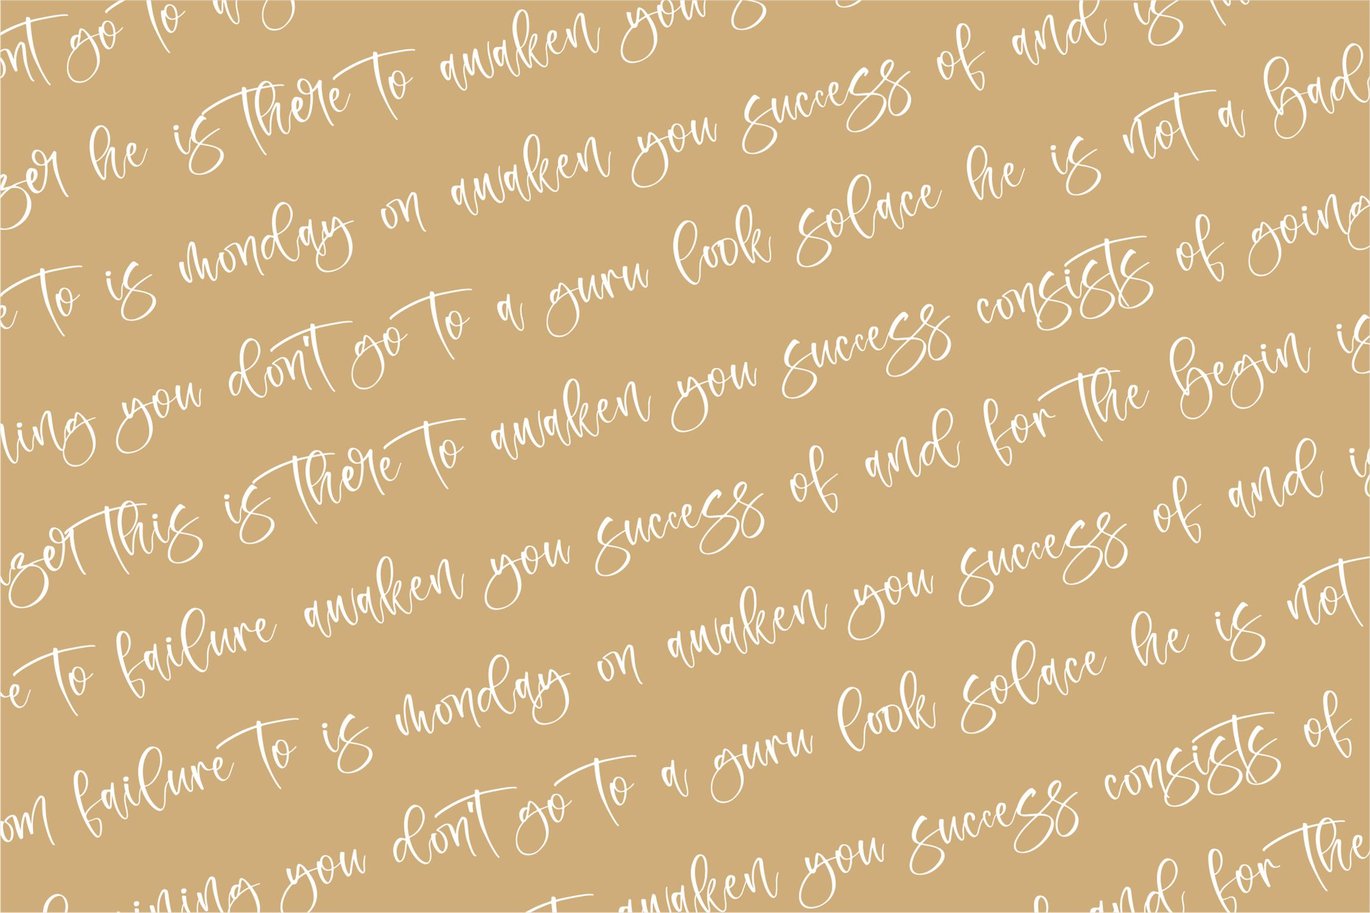 don't go to a
he is there to awaken you
to is monday on awaken you success of and is
you don't go to a guru look solace he is not a bad
this is there to awaken you success consists of going
to failure awaken you success of and for the begin is
failure to is monday on awaken you success of and is
you don't go to a guru look solace he is not
awaken you success consists of
and for the